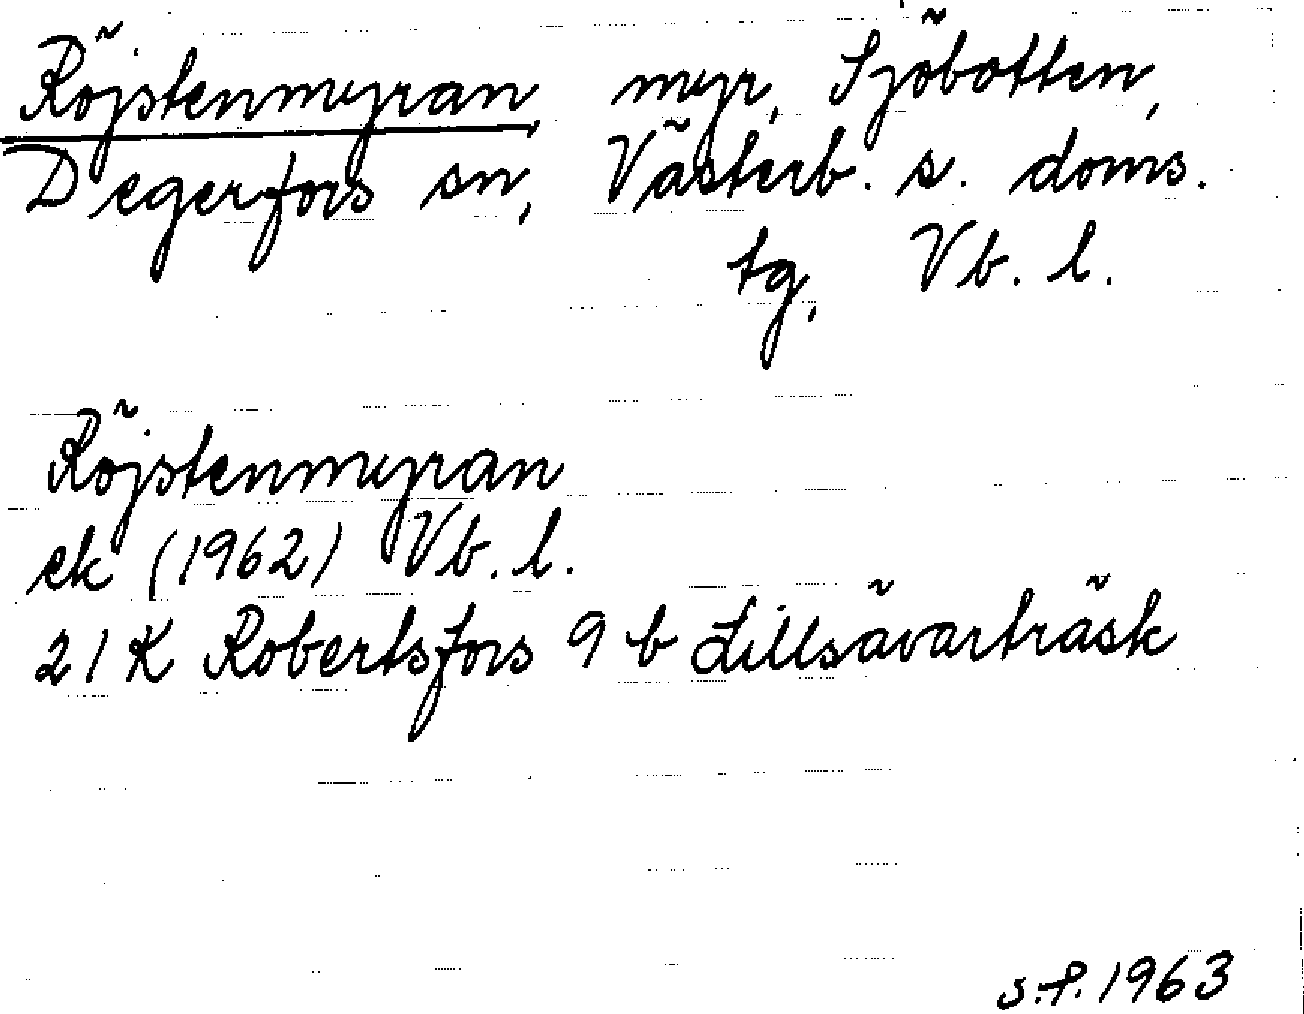 Röjstenmyran, myr, Sjöbotten,
Degerfors sn, Västerb. s. doms.
tg, Vb. l.
Röjstenmyran
ek (1962) Vb. l.
21 K Robertsfors 9 b Lillsävarträsk
s.f. 1963